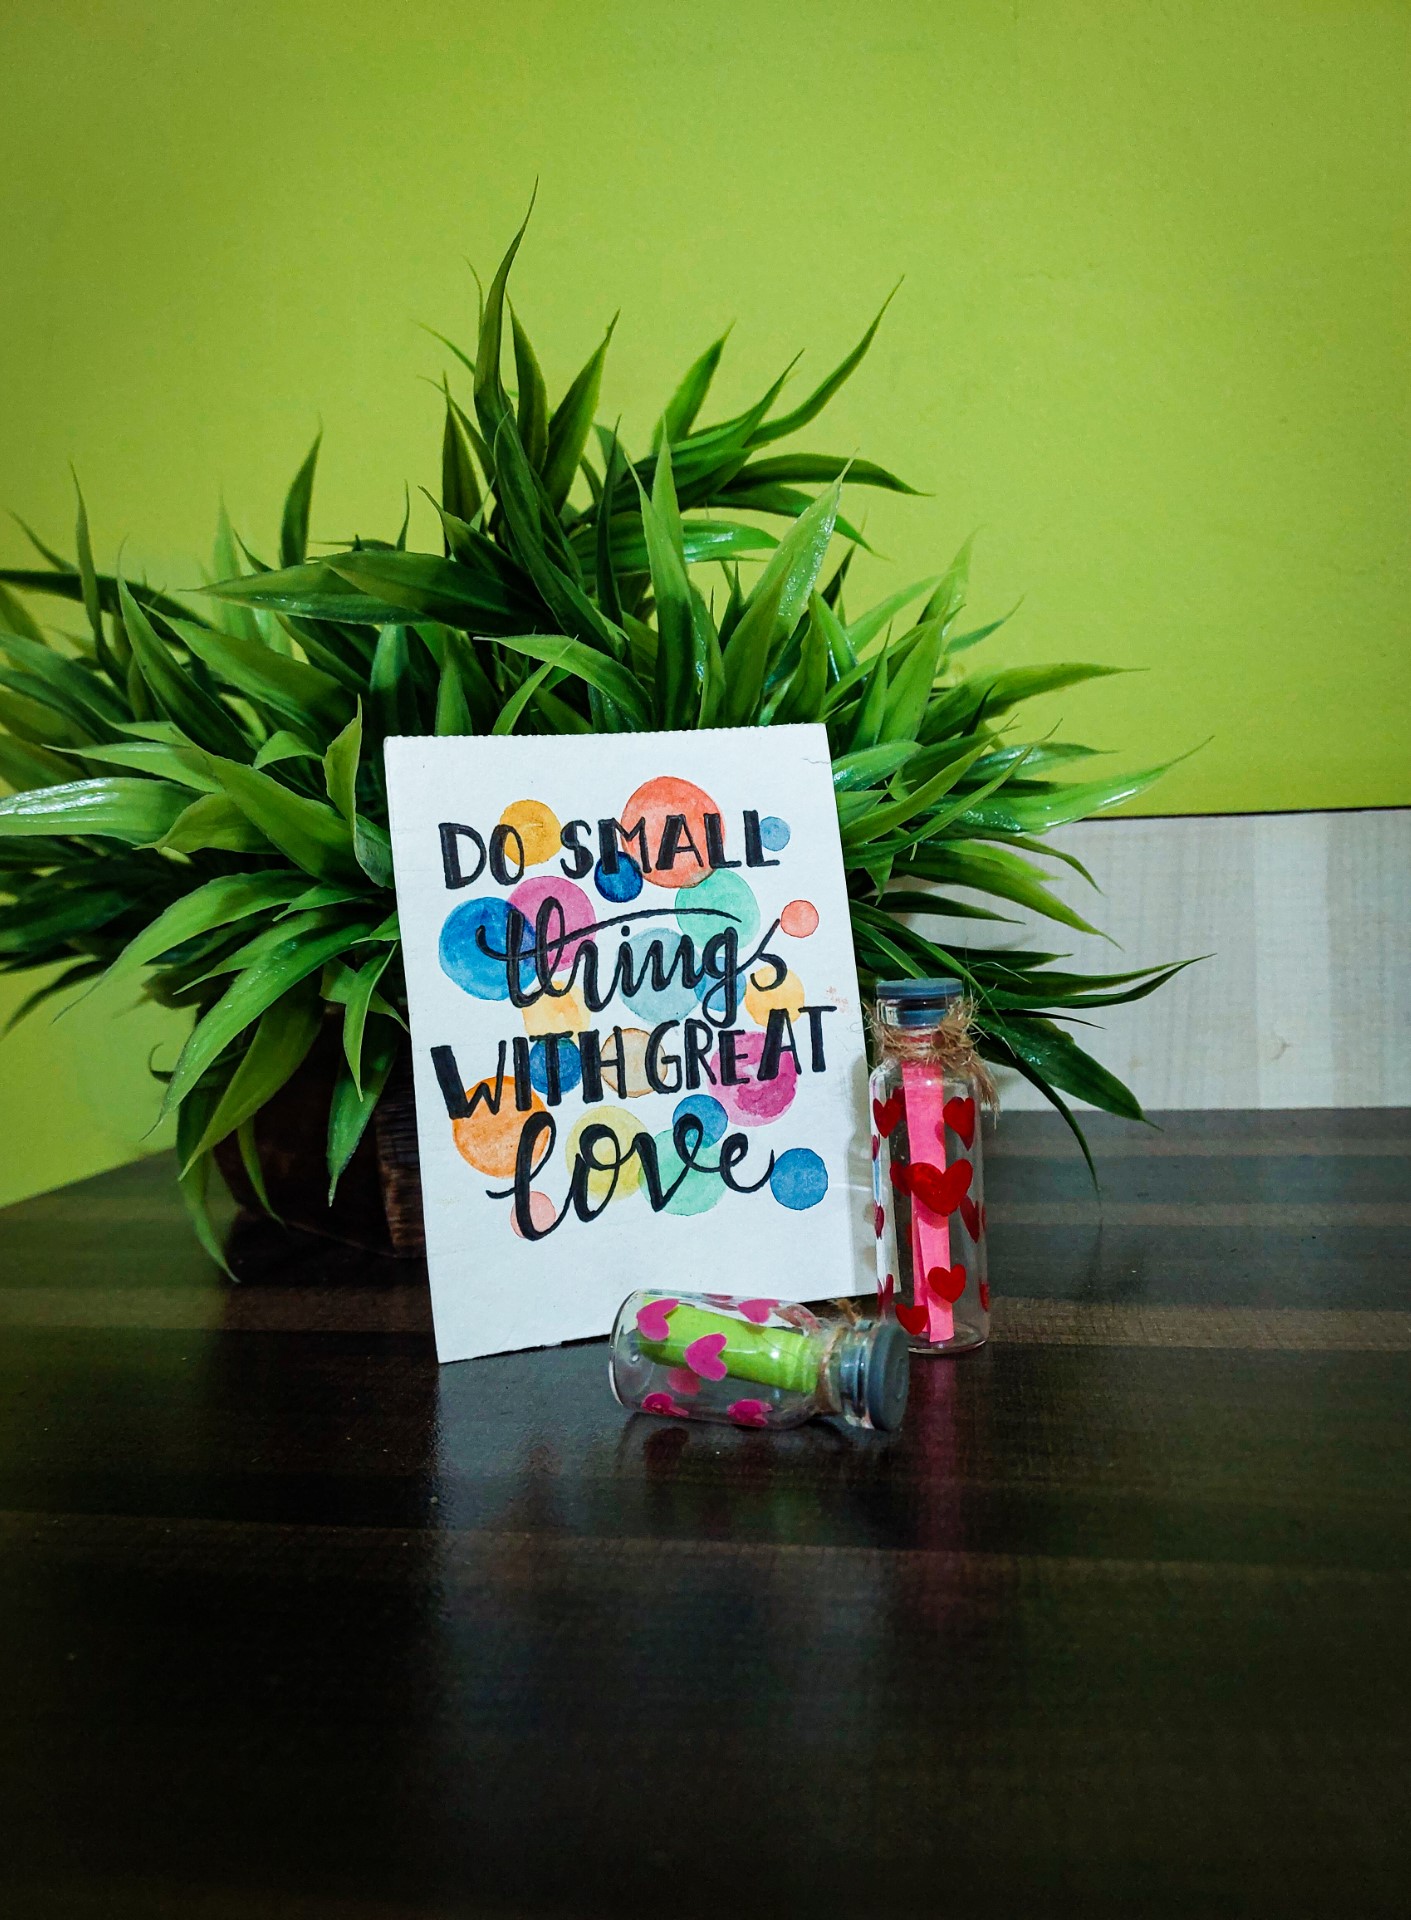 DO SMALL
things
WITH GREAT
love